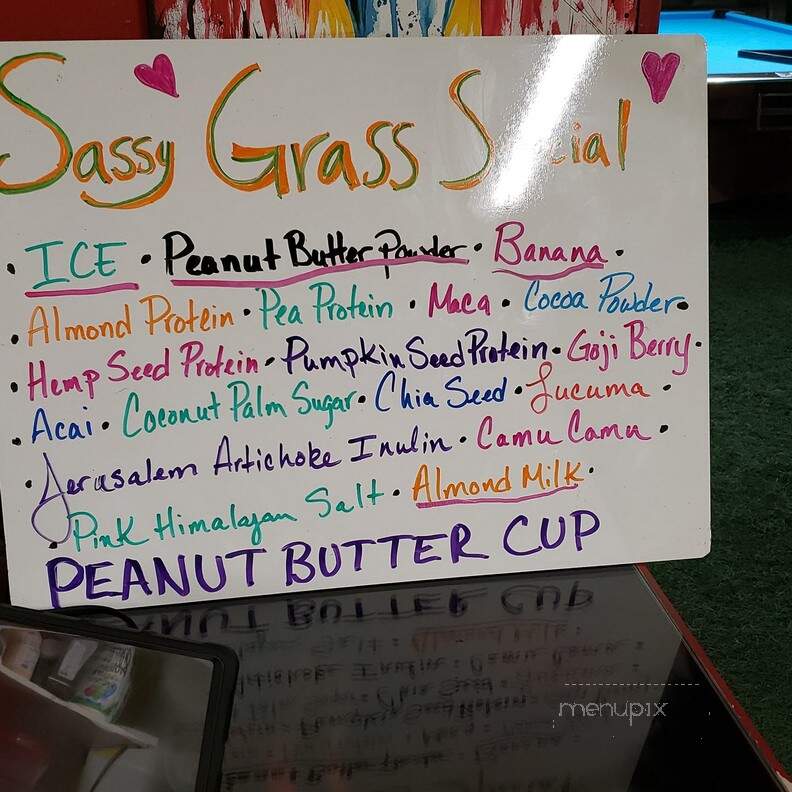 Sassy Grass S cial
• ICE • Peanut Butter Powder • Banana •
• Almond Protein • Pea Protein • Maca • Cocoa Powder •
• Hemp Seed Protein • Pumpkin Seed Protein • Goji Berry •
• Acai • Coconut Palm Sugar • Chia Seed • Lucuma •
• Jerusalem Artichoke Inulin • Camu Camu •
• Pink Himalayan Salt • Almond Milk •
PEANUT BUTTER CUP
menupix